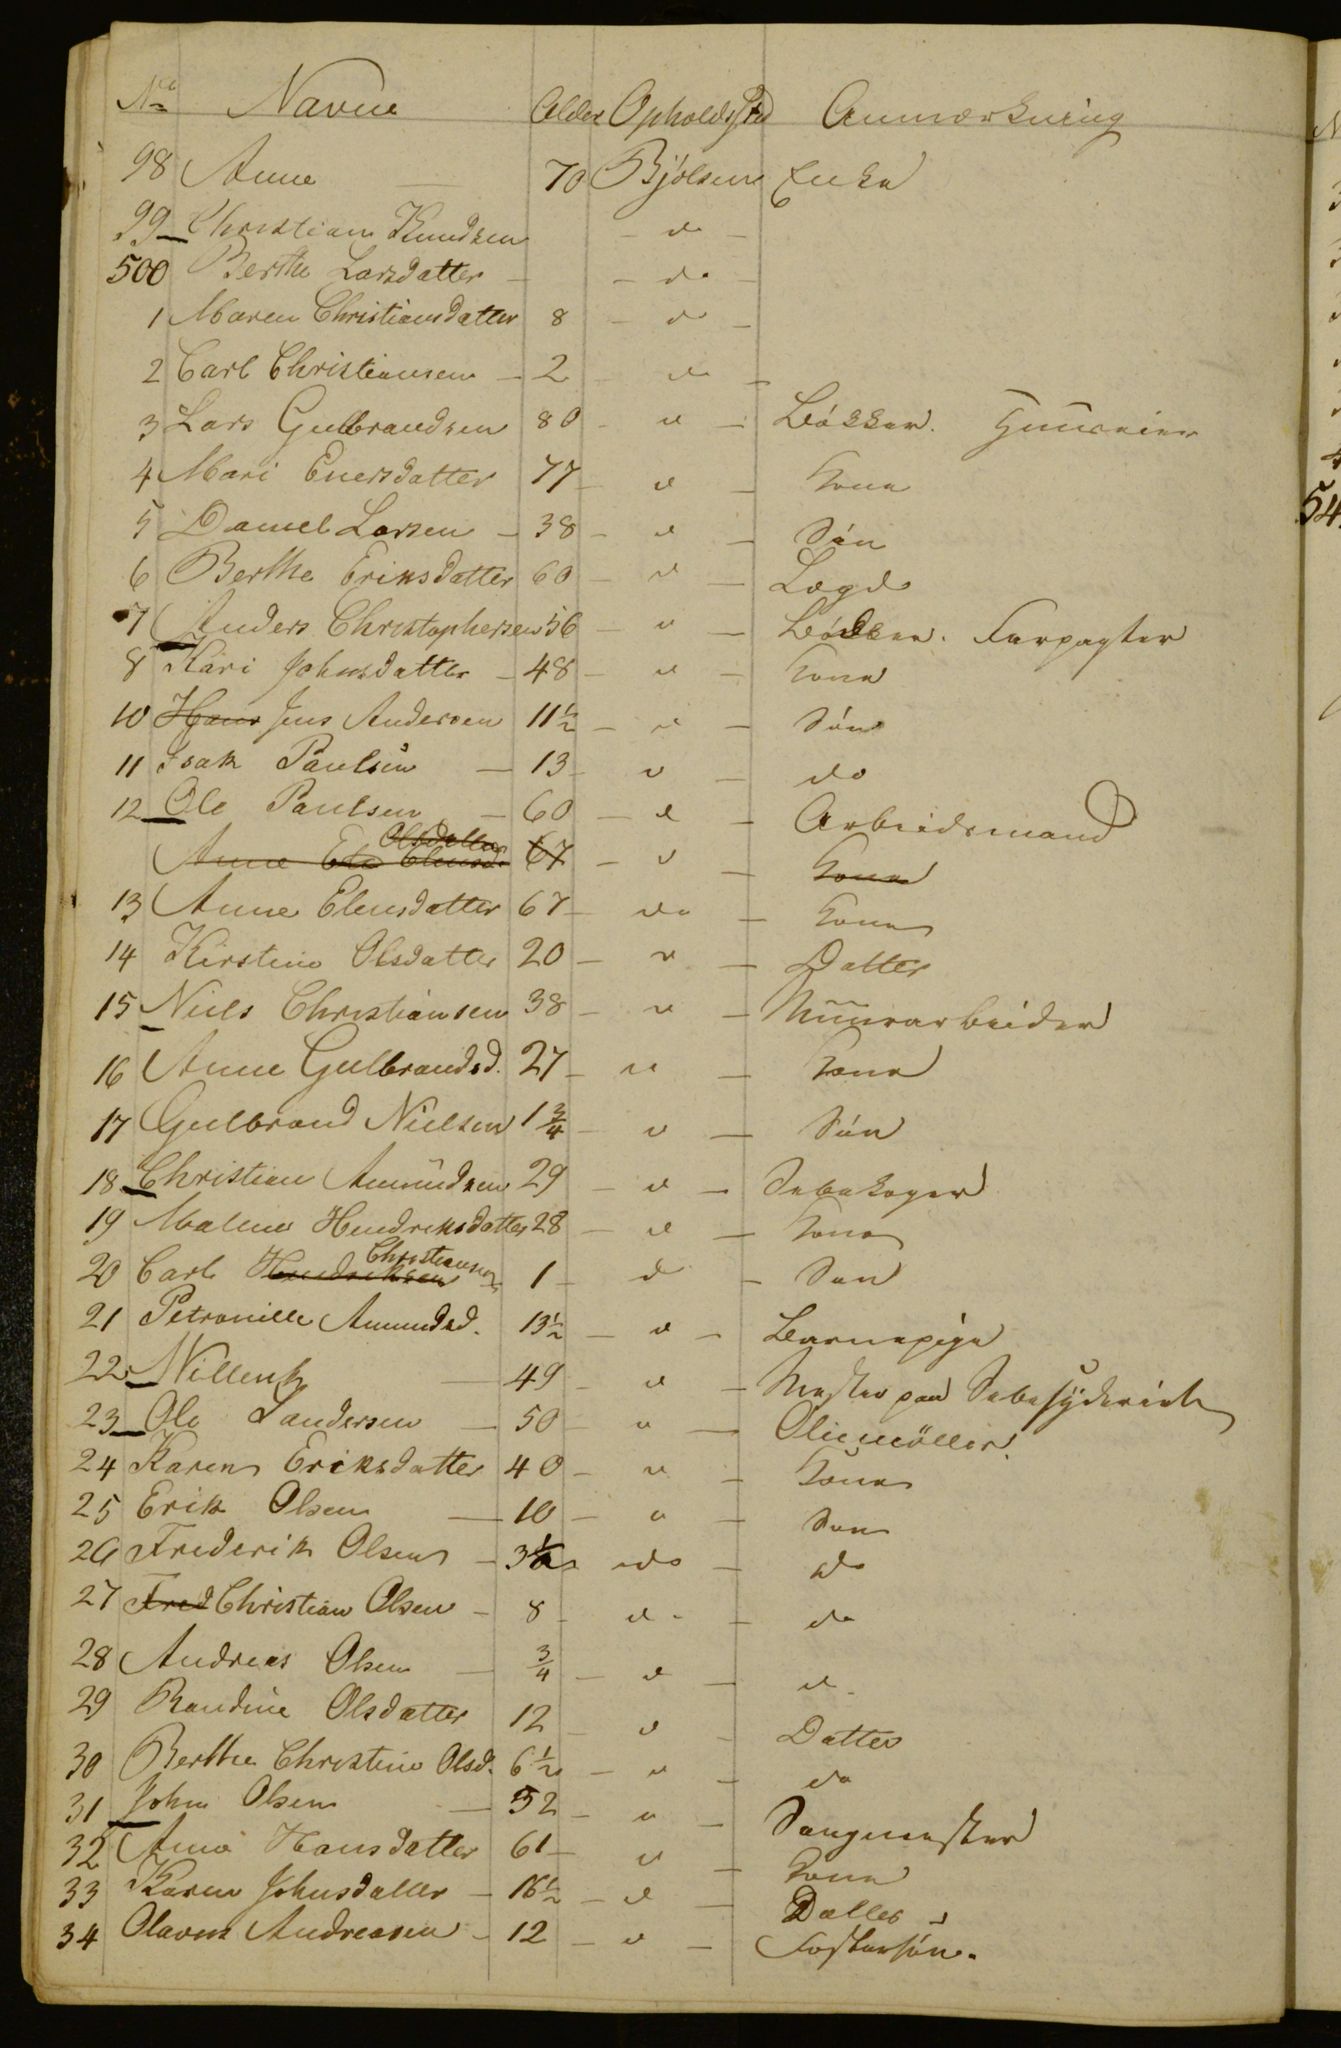 No Navne Alder Opholdssted Anmærkning
98 Anne — 70 Bjølsen Enke
99 Christian Knudsen — do —
500 Berthe Larsdatter — — do —
1 Maren Christiansdatter 8 — do —
2 Carl Christiansen — 2 — do —
3 Lars Gulbrandsen 80 — d — Bøkker. Huuseier
4 Mari Enersdatter 77 — d — Kone
5 Daniel Larsen — 38 — d — Søn
6 Berthe Eriksdatter 60 — d — Lægd
7 Anders Christophersen 56 — d — Bødker. Forpagter
8 Kari Johnsdatter — 48 — d — Kone
10 Hans Jens Andersen 11½ — d — Søn
11 Isak Paulsen — 13 — d — do
12 Ole Paulsen — 60 — d — Arbeidsmand
Olsdatter
Anne Ele Elensd. 67 — d — Kone
13 Anne Elensdatter 67 — do — Kone
14 Kirstine Olsdatter 20 — d — Datter
15 Niels Christiansen 38 — d — Muurarbeider
16 Anne Gulbrandsd. 27 — d — Kone
17 Gulbrand Nielsen 1¾ — d — Søn
18 Christian Amundsen 29 — d — Sæbekoger
19 Malene Hendriksdatter 28 — d — Kone
Christiansen
20 Carl Hendriksen 1 — d — Søn
21 Petronille Amundsd. 13½ — d — Barnepige
22 Willenk — 49 — d — Mester paa Sæbesyderiet
23 Ole Sandersen — 50 — d — Oliemøller
24 Karen Eriksdatter 40 — d — Kone
25 Erik Olsen — 10 — d — Søn
26 Frederik Olsen — 3½ — do — do
27 Fred Christian Olsen — 8 — d — do
28 Andreas Olsen — ¾ — d — d
29 Randine Olsdatter 12 — d — Datter
30 Berthe Christine Olsd. 6½ — d — do
31 John Olsen — 52 — d — Saugmester
32 Anne Hansdatter 61 — d — Kone
33 Karen Johnsdatter — 16½ — d — Datter
34 Olaves Andreasen — 12 — d — Fostersøn.
54